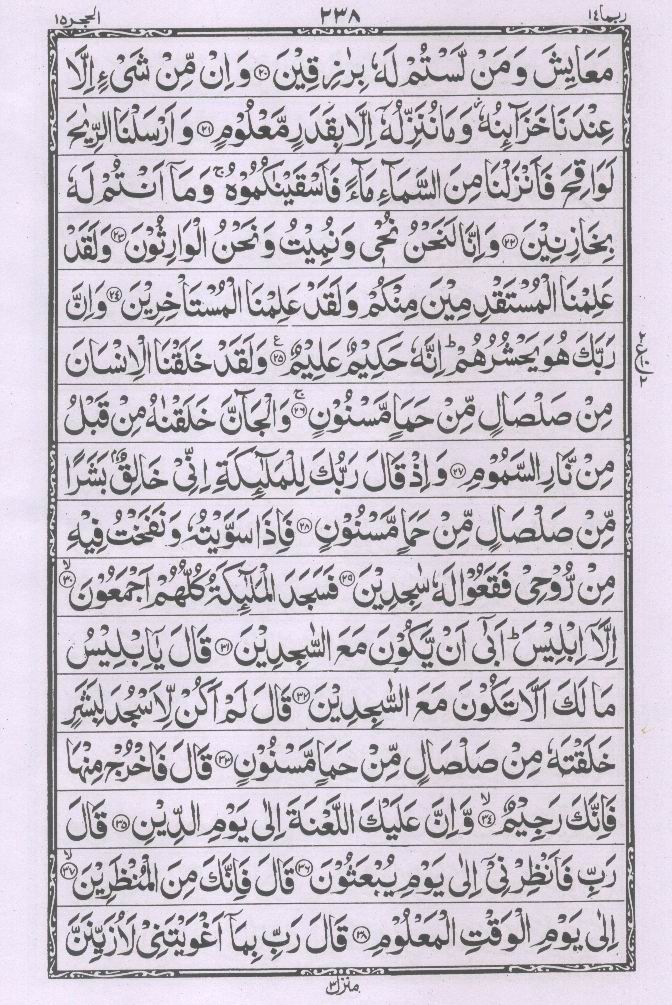 ربما ١٤
٢٣٨
الحجر ١٥
مَعَايِشَ وَمَنْ لَّسْتُمْ لَهٗ بِرٰزِقِيْنَ ۝٢٠ وَاِنْ مِّنْ شَيْءٍ اِلَّا
عِنْدَنَا خَزَآئِنُهٗ ۡ وَمَا نُنَزِّلُهٗۤ اِلَّا بِقَدَرٍ مَّعْلُوْمٍ ۝٢١ وَاَرْسَلْنَا الرِّيٰحَ
لَوَاقِحَ فَاَنْزَلْنَا مِنَ السَّمَآءِ مَآءً فَاَسْقَيْنٰكُمُوْهُ ۚ وَمَاۤ اَنْتُمْ لَهٗ
بِخَازِنِيْنَ ۝٢٢ وَاِنَّا لَنَحْنُ نُحْيٖ وَنُمِيْتُ وَنَحْنُ الْوَارِثُوْنَ ۝٢٣ وَلَقَدْ
عَلِمْنَا الْمُسْتَقْدِمِيْنَ مِنْكُمْ وَلَقَدْ عَلِمْنَا الْمُسْتَاْخِرِيْنَ ۝٢٤ وَاِنَّ
رَبَّكَ هُوَ يَحْشُرُهُمْ ؕ اِنَّهٗ حَكِيْمٌ عَلِيْمٌ ۝٢٥ ع وَلَقَدْ خَلَقْنَا الْاِنْسَانَ
مِنْ صَلْصَالٍ مِّنْ حَمَاٍ مَّسْنُوْنٍ ۝٢٦ ۚ وَالْجَآنَّ خَلَقْنٰهُ مِنْ قَبْلُ
مِنْ نَّارِ السَّمُوْمِ ۝٢٧ وَاِذْ قَالَ رَبُّكَ لِلْمَلٰٓئِكَةِ اِنِّيْ خَالِقٌۢ بَشَرًا
مِّنْ صَلْصَالٍ مِّنْ حَمَاٍ مَّسْنُوْنٍ ۝٢٨ فَاِذَا سَوَّيْتُهٗ وَنَفَخْتُ فِيْهِ
مِنْ رُّوْحِيْ فَقَعُوْا لَهٗ سٰجِدِيْنَ ۝٢٩ فَسَجَدَ الْمَلٰٓئِكَةُ كُلُّهُمْ اَجْمَعُوْنَ ۝٣٠ ۙ
اِلَّاۤ اِبْلِيْسَ ؕ اَبٰۤى اَنْ يَّكُوْنَ مَعَ السّٰجِدِيْنَ ۝٣١ قَالَ يٰۤاِبْلِيْسُ
مَا لَكَ اَلَّا تَكُوْنَ مَعَ السّٰجِدِيْنَ ۝٣٢ قَالَ لَمْ اَكُنْ لِّاَسْجُدَ لِبَشَرٍ
خَلَقْتَهٗ مِنْ صَلْصَالٍ مِّنْ حَمَاٍ مَّسْنُوْنٍ ۝٣٣ قَالَ فَاخْرُجْ مِنْهَا
فَاِنَّكَ رَجِيْمٌ ۝٣٤ ۙ وَّاِنَّ عَلَيْكَ اللَّعْنَةَ اِلٰى يَوْمِ الدِّيْنِ ۝٣٥ قَالَ
رَبِّ فَاَنْظِرْنِيْۤ اِلٰى يَوْمِ يُبْعَثُوْنَ ۝٣٦ قَالَ فَاِنَّكَ مِنَ الْمُنْظَرِيْنَ ۝٣٧ ۙ
اِلٰى يَوْمِ الْوَقْتِ الْمَعْلُوْمِ ۝٣٨ قَالَ رَبِّ بِمَاۤ اَغْوَيْتَنِيْ لَاُزَيِّنَنَّ
منزل ٣